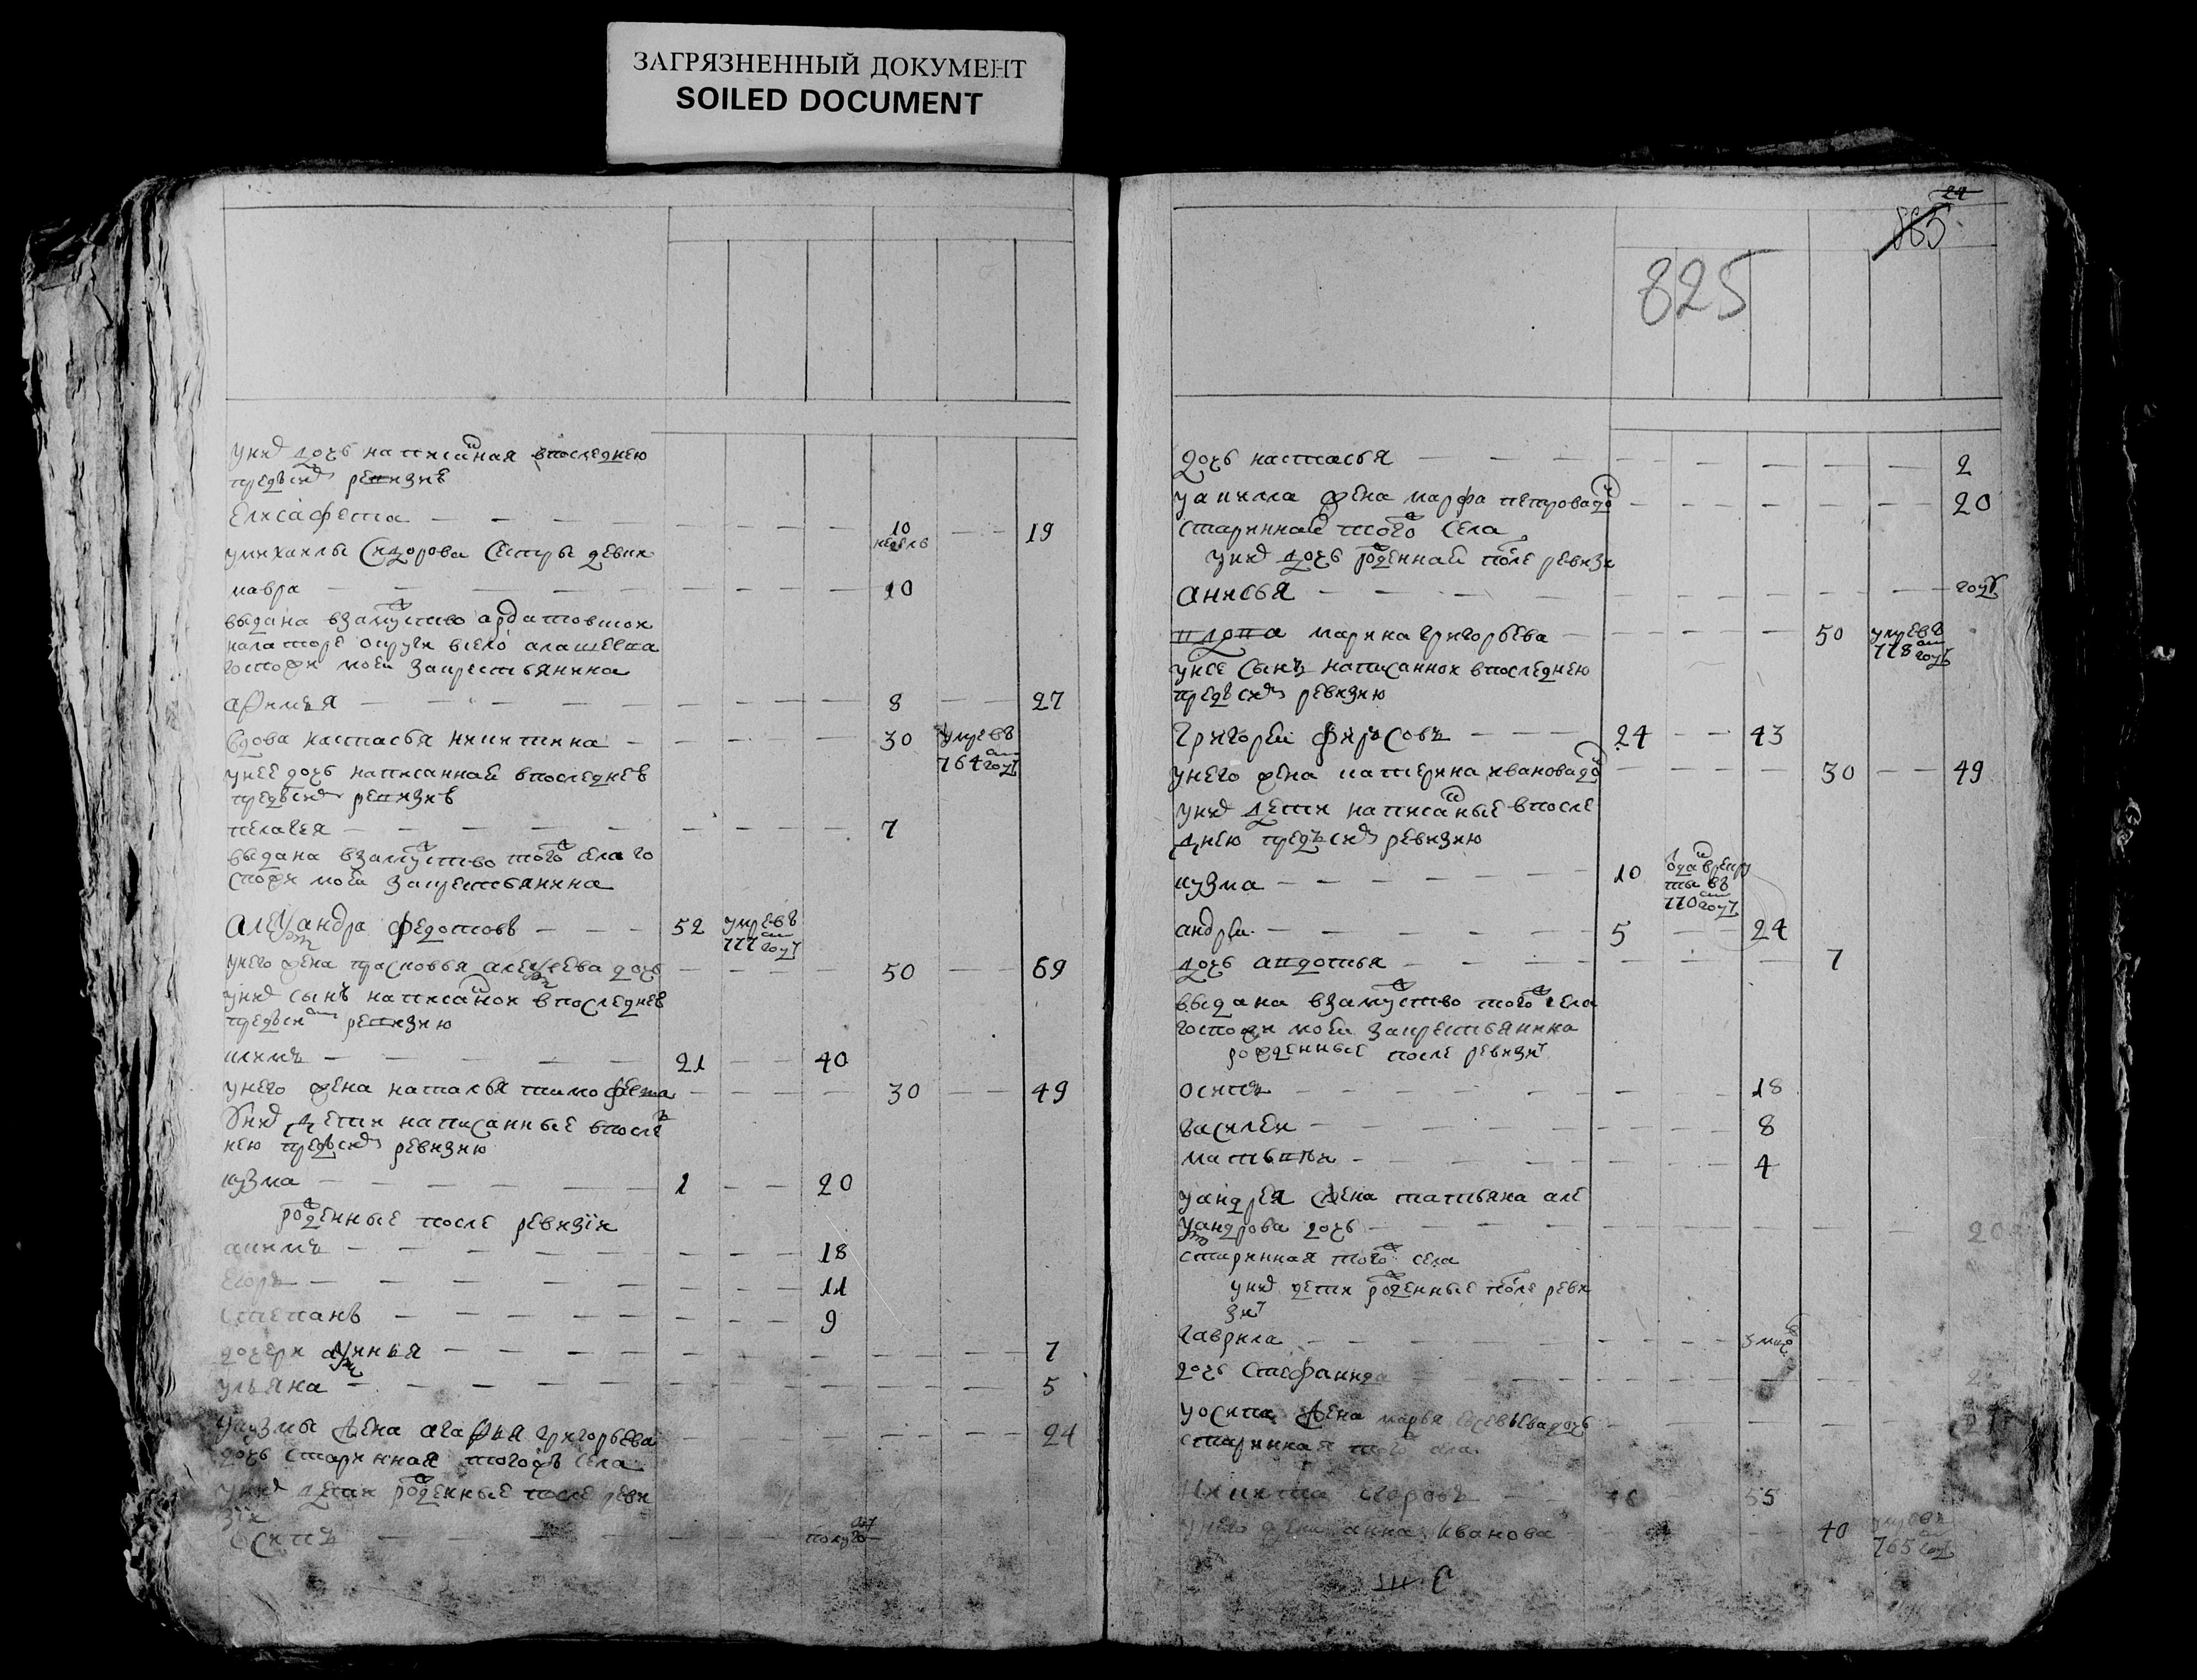 ЗАГРЯЗНЕННЫЙ ДОКУМЕНТ
SOILED DOCUMENT
уних дочь написаная впоследнею
предъ сих ревизиѣ
Елисафета — 10 недель — 19
умихаилы Сидорова Сестры девки
мавра — 10
выдана взамужство ардатовской
округи вѣело
госпожи моей закрестьянина
афимья — 8 — 27
вдова настасья никитина — 30 умре въ 764 году
унее дочь написанная впоследнеѣ
предъ сих ревизиѣ
пелагея — 7
выдана взамужство того села го
спожи моей закрестьянина
Александра федотовъ — 52 умре въ 777 году
унего жена прасковья алексеева дочь — 50 — 69
уних сынъ написаной впоследнеѣ
предъ сих ревизию
климъ — 21 — 40
унего жена наталья тимофеева — 30 — 49
уних дети написанные впосле
нею предъ сих ревизию
кузма — 1 — 20
рожденные после ревизiи
акимъ — 18
Егоръ — 11
степанъ — 9
дочери аксинья — 7
ульяна — 5
укузмы жена агафья григорьева — 24
дочь старинная тогожъ села
уних дети рожденные после реви
зiи
Осипъ — полуго
24
885
825
дочь настасья — 2
уакима жена марфа петрова до — 20
стариннай того села
уних дочь рожденнай после ревизи
анисья — году
вдова марина григорьева — 50 умре въ 778 году
унее сынъ написанной впоследнею
предъ сих ревизию
Григорей фирсовъ — 24 — 43
унего жена катерина иванова до — 30 — 49
уних дети написаные впосле
днею предъ сих ревизию
кузма — 10 отда в рекру ты въ 770 году
андрей — 5 — 24
дочь авдотья — 7
выдана взамужство того села
госпожи моей закрестьянина
рожденные после ревизи
осипъ — 18
василеи — 8
матвѣи — 4
уандрея жена татьяна але
ксандрова дочь — 20
старинная того села
уних дети рожденные после реви
зи
гаврила — 3
дочь Стефанида
уосипа жена марья дочь
старинная того села
Никита егоровъ — 36 — 55
унего жена анна иванова — 40 умре въ 765 году